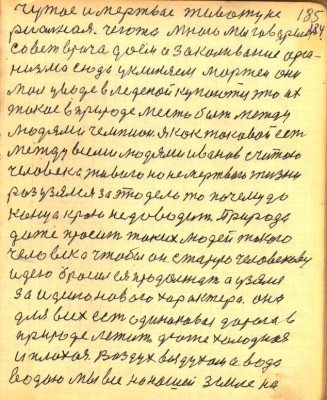 185
184
чутое и мертвое животу не
рложная. чегото много мы говорили
совет врача доём а закаливание орга-
низма сюдь уклиняем мортев они
мол у воде в ледяной купаются это их
такое в природе место быть между
людями чемпион я как таковой ест
между всеми людями иванов считаю
человека живого но не мертвого жизни
разузялся за это дело то почему до
конца краю не доводит природа
даже просит таких людей такого
человека чтобы он старую человекову
идею бросил ея продолжат а узялся
за идинонового характера. она
для всех ест одинаковая дорога в
природе летит даже холодная
и плохая. Воздух воздухом а вода
водою мы все на нашей земле на